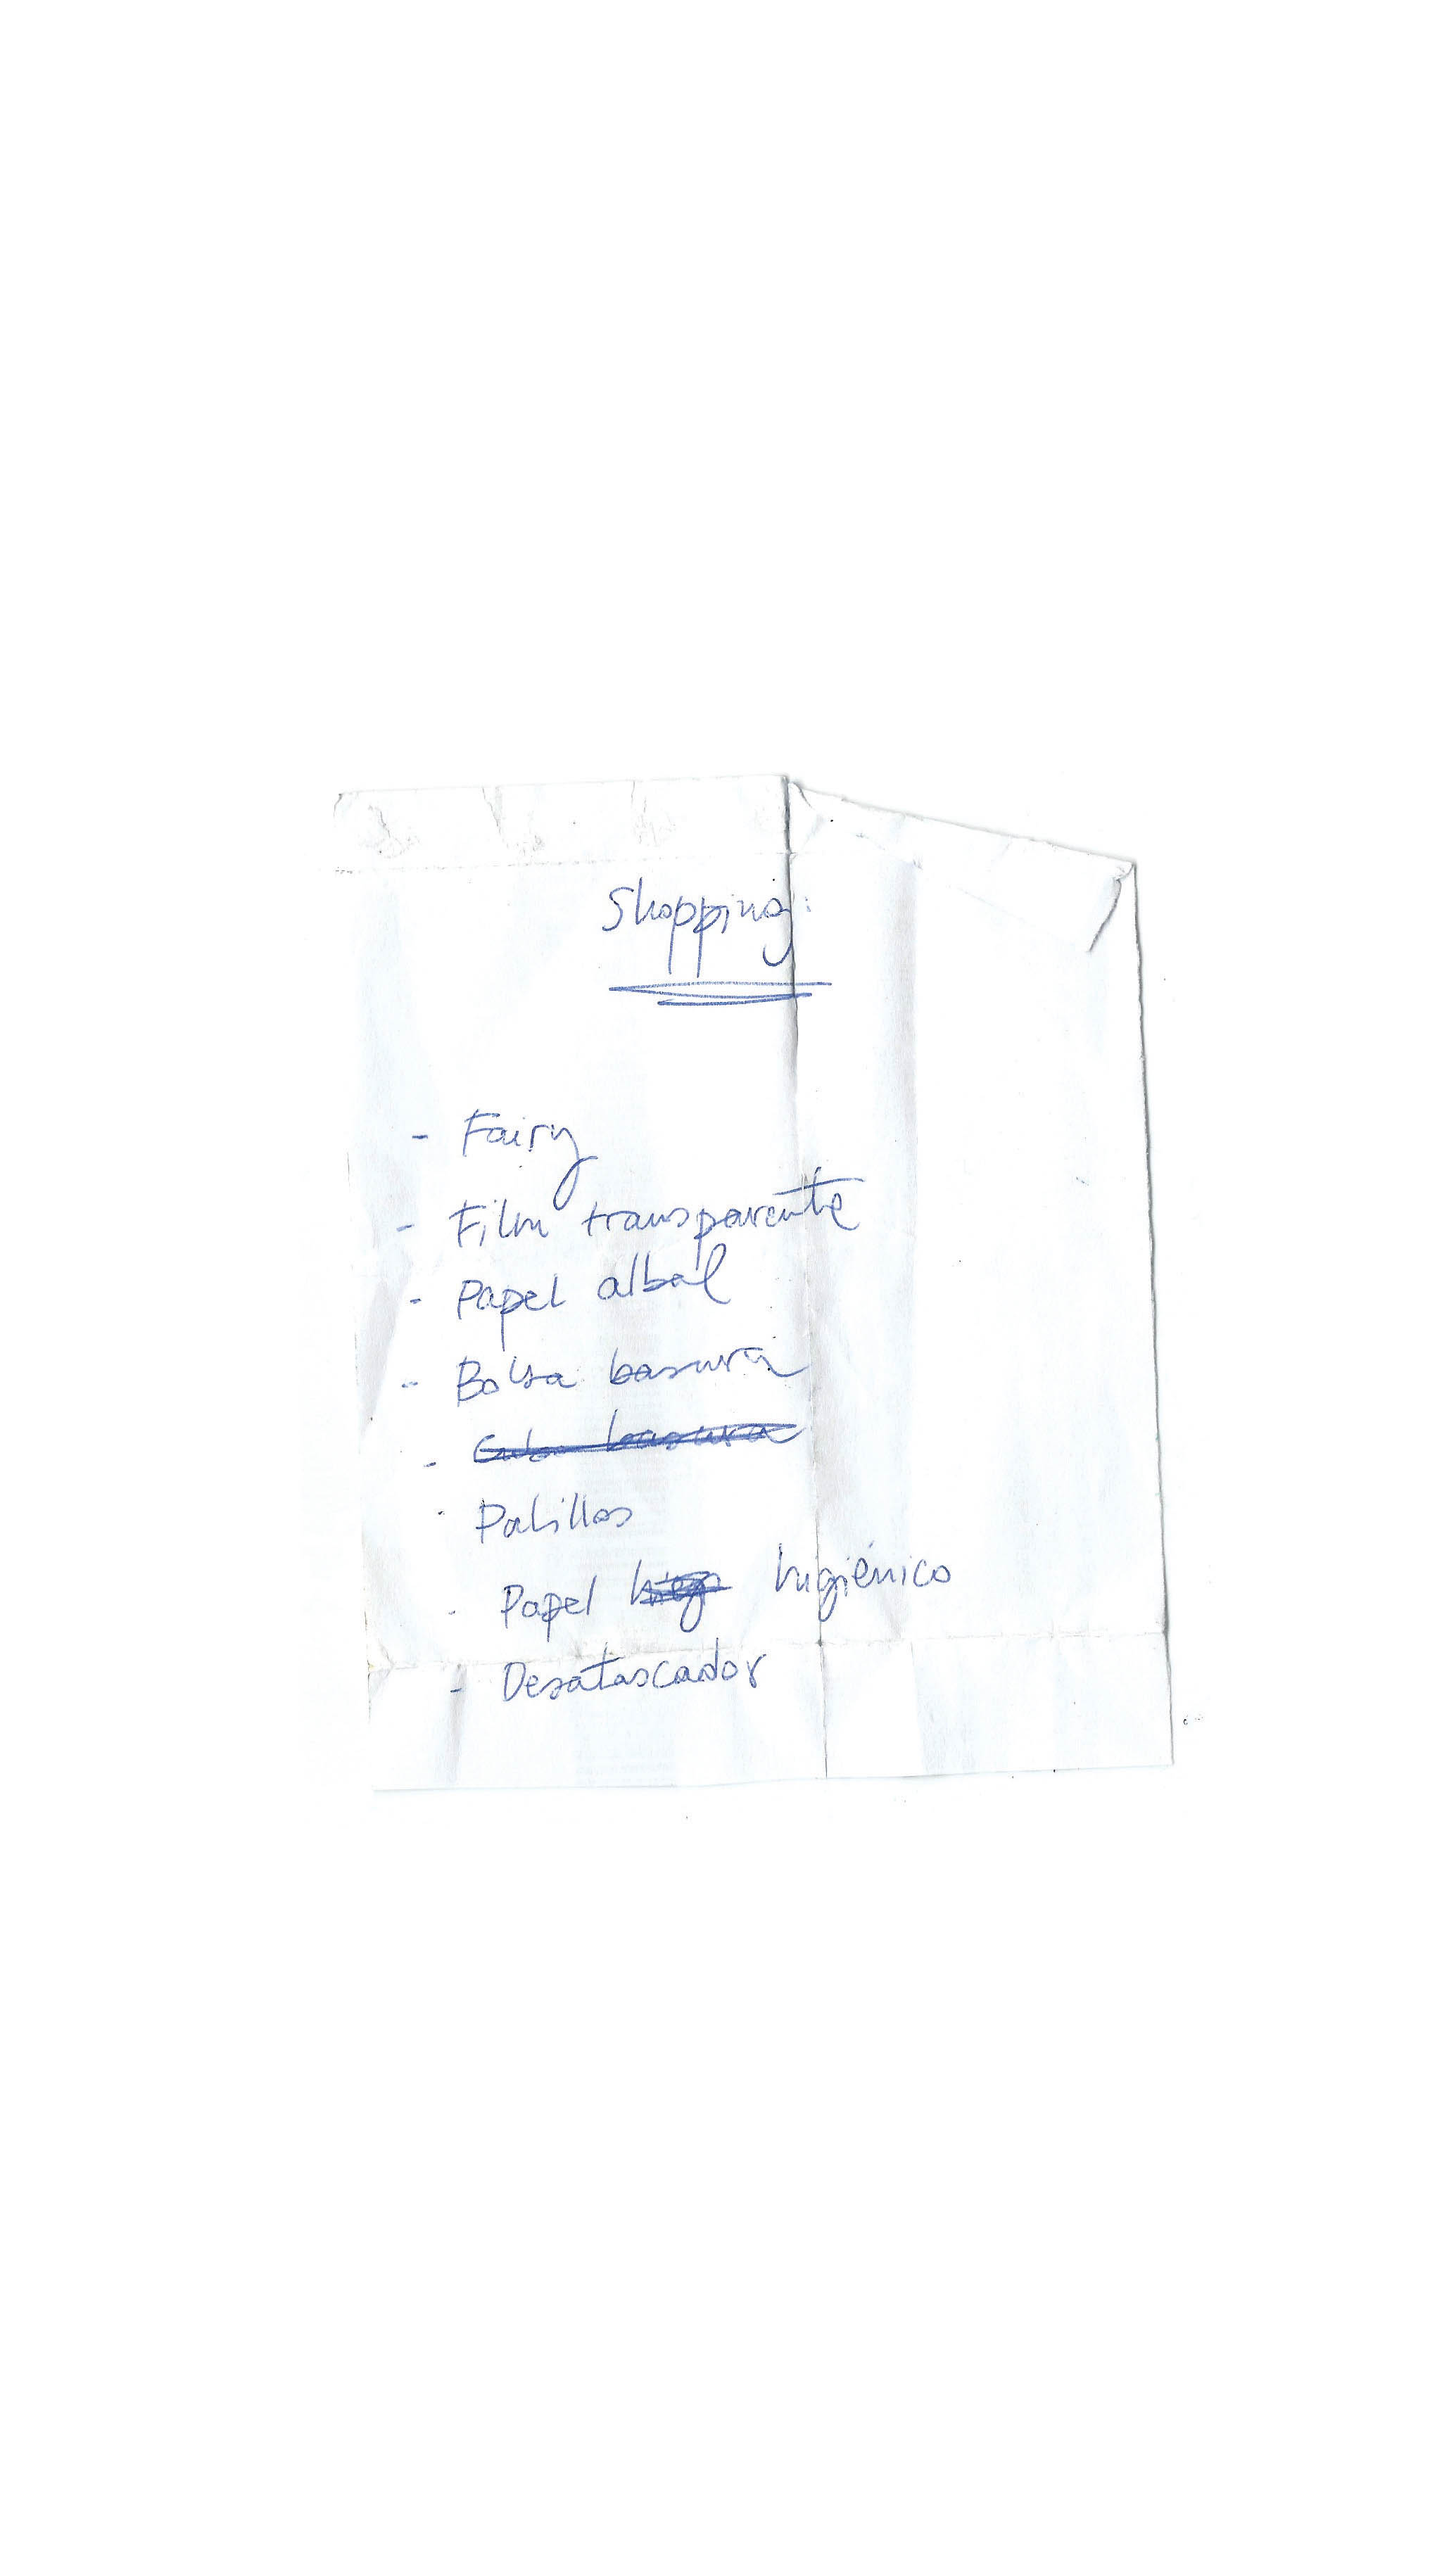 Shopping:
- Fairy
- Film transparente
- Papel albal
- Bolsa basura
- Cubo basura
- Palillos
- Papel hig higiénico
- Desatascador